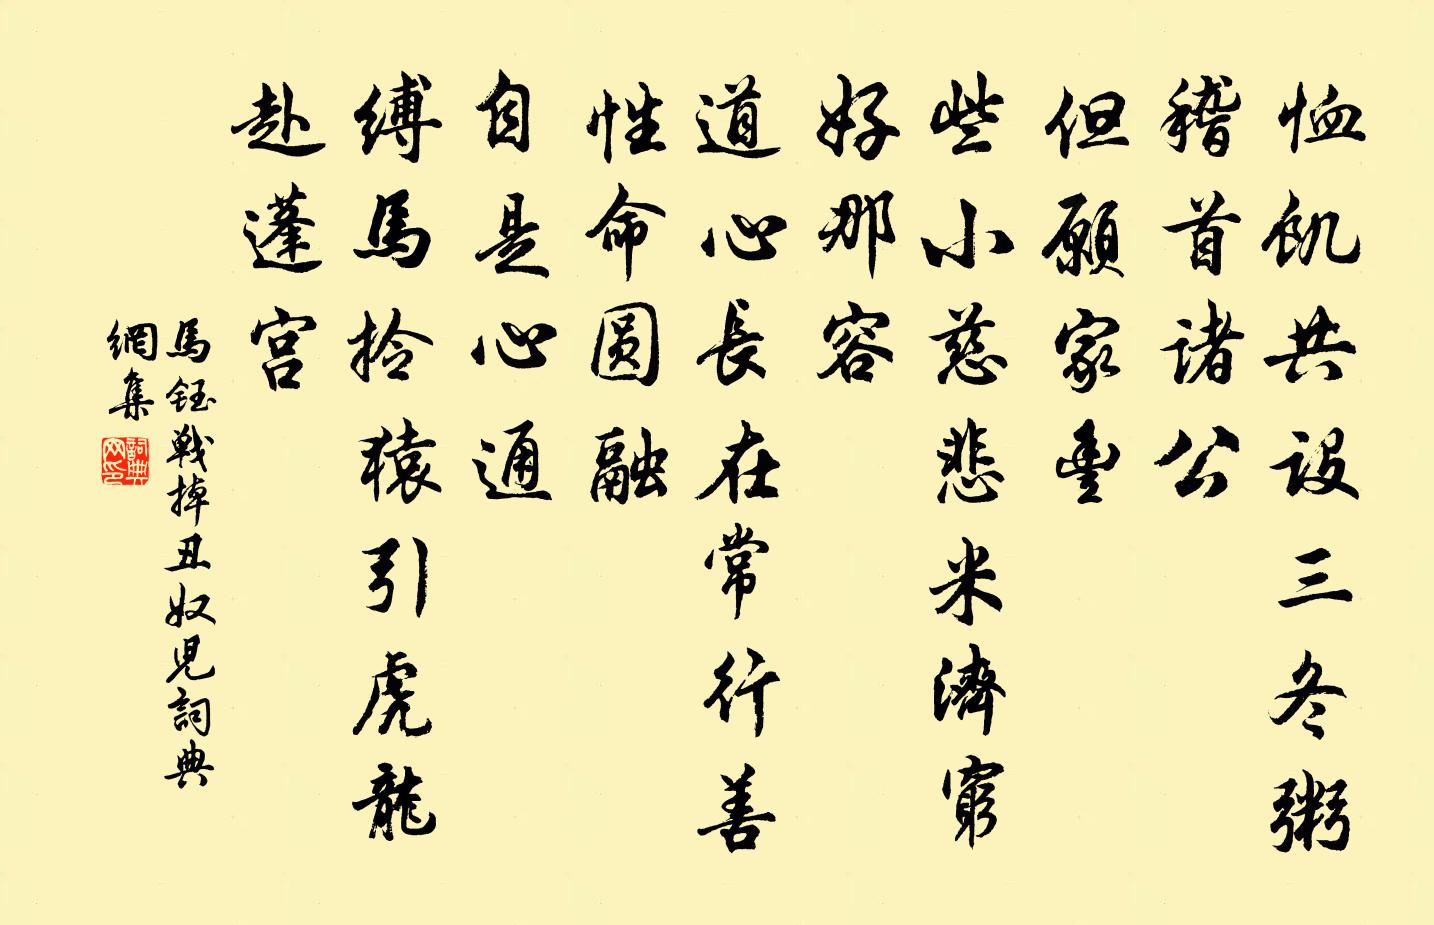 恤飢共設三冬粥
稽首諸公
但願家豐
些小慈悲米濟窮
好那容
道心長在常行善
性命圆融
自是心通
縛馬拴猿引虎龍
赴蓬宫
馬鈺戰掉丑奴兒詞典
網集
詞典
网印